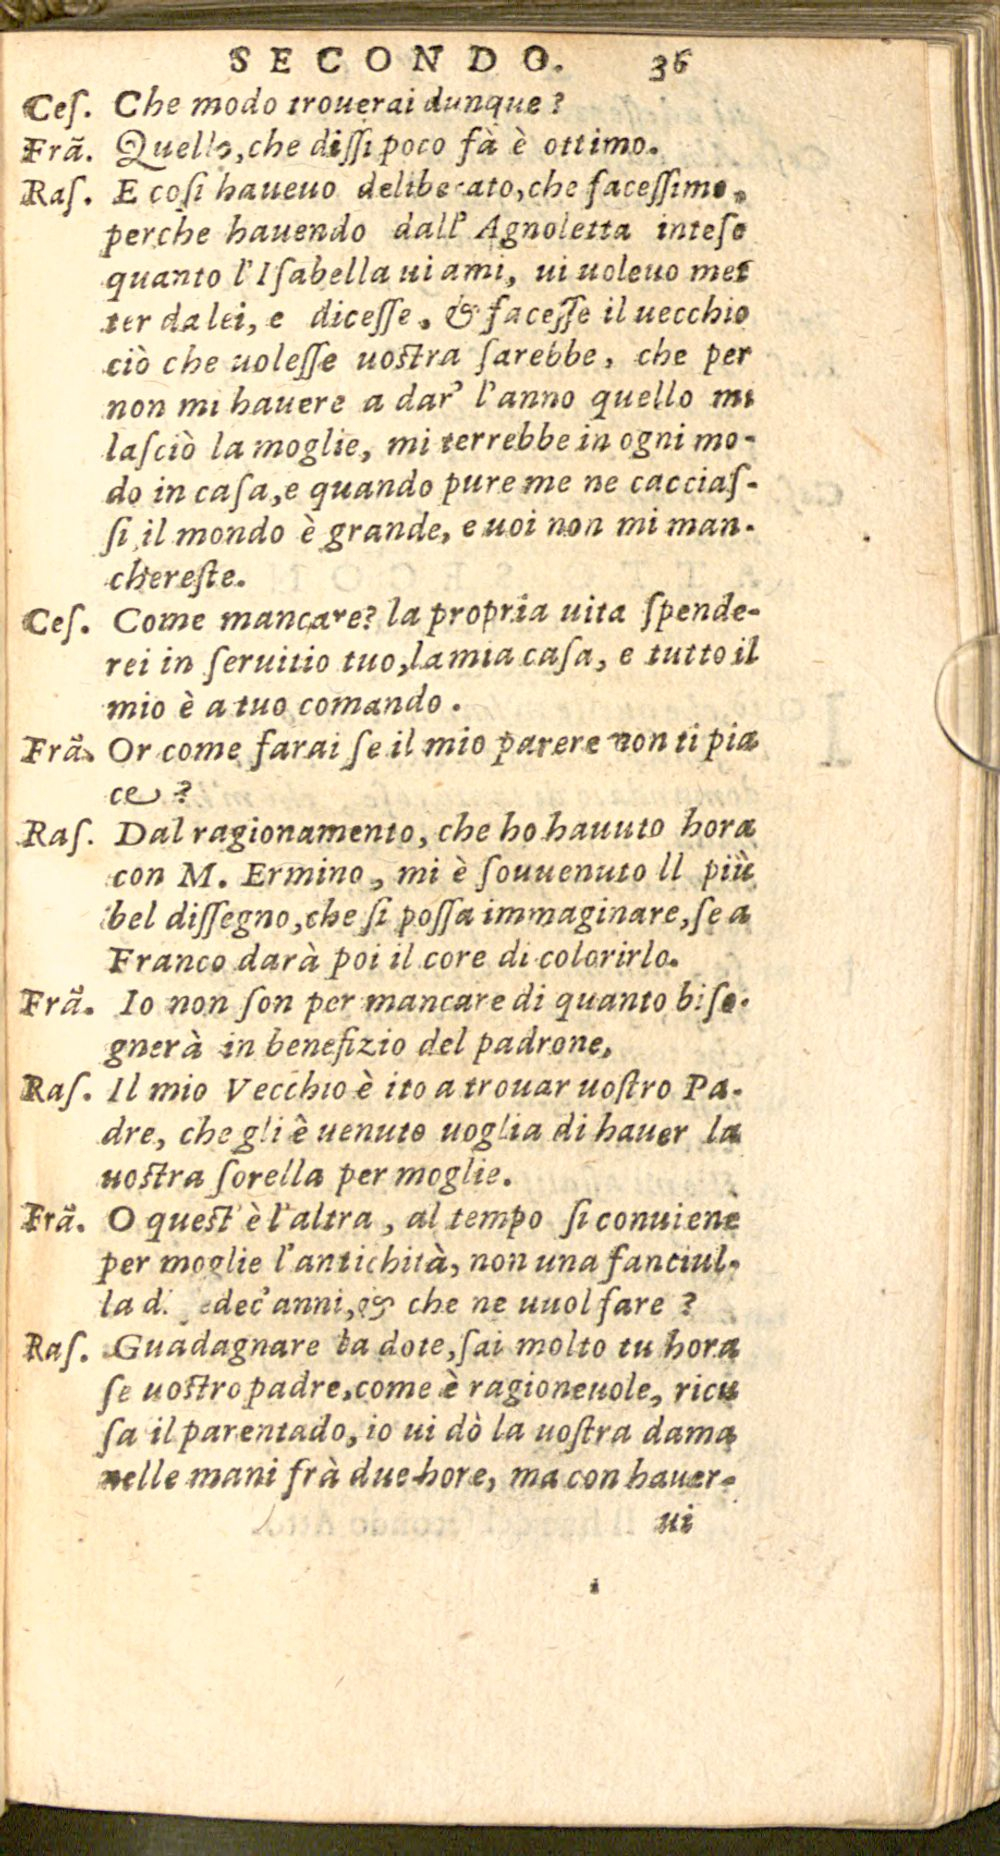 SECONDO. 36
Ceſ. Che modo trouerai dunque?
Frã. Quello, che diſſi poco fà è ottimo.
Raſ. E coſi haueuo deliberato, che faceſſimo,
perche hauendo dall' Agnoletta inteſo
quanto l'Iſabella ui ami, ui uoleuo met
ter da lei, e diceſſe, & faceſſe il uecchio
ciò che uoleſſe uoſtra ſarebbe, che per
non mi hauere a dar' l'anno quello mi
laſciò la moglie, mi terrebbe in ogni mo-
do in caſa, e quando pure me ne cacciaſ-
ſi il mondo è grande, e uoi non mi man-
chereſte.
Ceſ. Come mancare? la propria uita ſpende-
rei in ſeruitio tuo, la mia caſa, e tutto il
mio è a tuo comando.
Frã. Or come farai ſe il mio parere non ti pia
ce?
Raſ. Dal ragionamento, che ho hauuto hora
con M. Ermino, mi è ſouuenuto ll più
bel diſſegno, che ſi poſſa immaginare, ſe a
Franco darà poi il core di colorirlo.
Frã. Io non ſon per mancare di quanto biſo-
gnerà in benefizio del padrone.
Raſ. Il mio Vecchio è ito a trouar uoſtro Pa-
dre, che gli è uenuto uoglia di hauer la
uoſtra ſorella per moglie.
Frã. O queſt' è l'altra, al tempo ſi conuiene
per moglie l'antichità, non una fanciul-
la anni, & che ne uuol fare?
Raſ. Guadagnare la dote, ſai molto tu hora
ſe uoſtro padre, come è ragioneuole, ricu
ſa il parentado, io ui dò la uoſtra dama
nelle mani frà due hore, ma con hauer-
ui